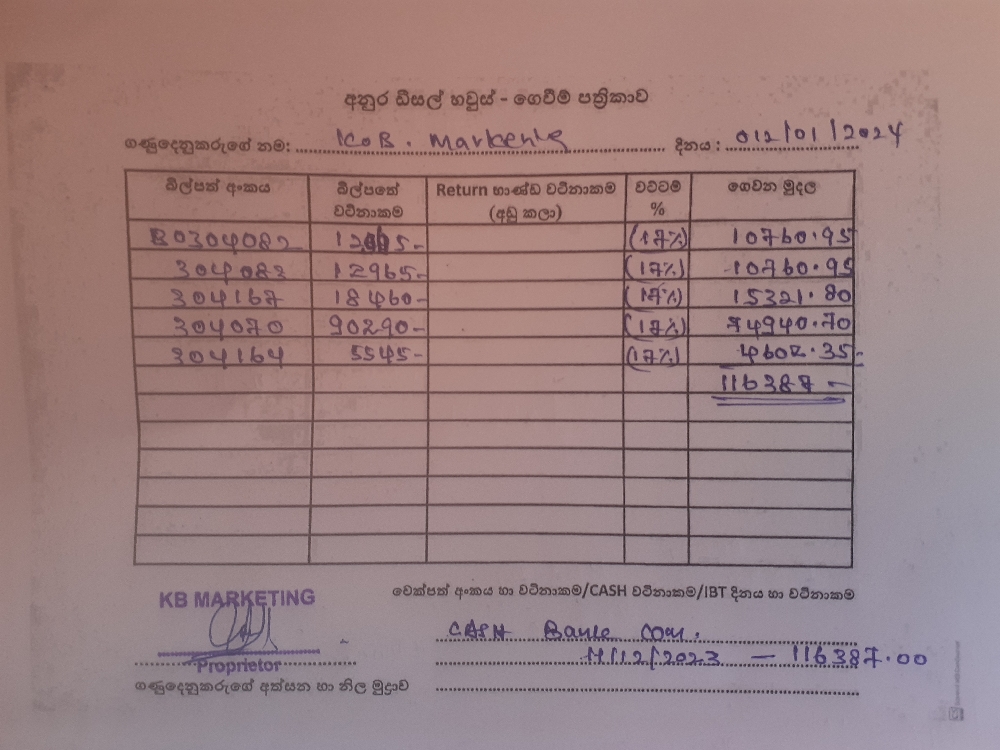 අතුර ඩීසල් හවුස් - ගෙවීම් පත්‍රිකාව
ගණුදෙනුකරුගේ නම: K.B. Marketing දිනය : 012/01/2024
බිල්පත් අංකය බිල්පතේ වටිනාකම Return භාණ්ඩ වටිනාකම (අඩු කලා) වට්ටම % ගෙවන මුදල
B0304082 (17%) 10760.95
304083 12965- (17%) 10760.95
304167 18460- (17%) 15321.80
304070 90290- (17%) 74940.70
304164 5545- (17%) 4602.35
116387-
KB MARKETING
Proprietor
ගණුදෙනුකරුගේ අත්සන හා නිල මුද්‍රාව
චෙක්පත් අංකය හා වටිනාකම/CASH වටිනාකම/IBT දිනය හා වටිනාකම
CASH Bank
11/12/2023 - 116387.00